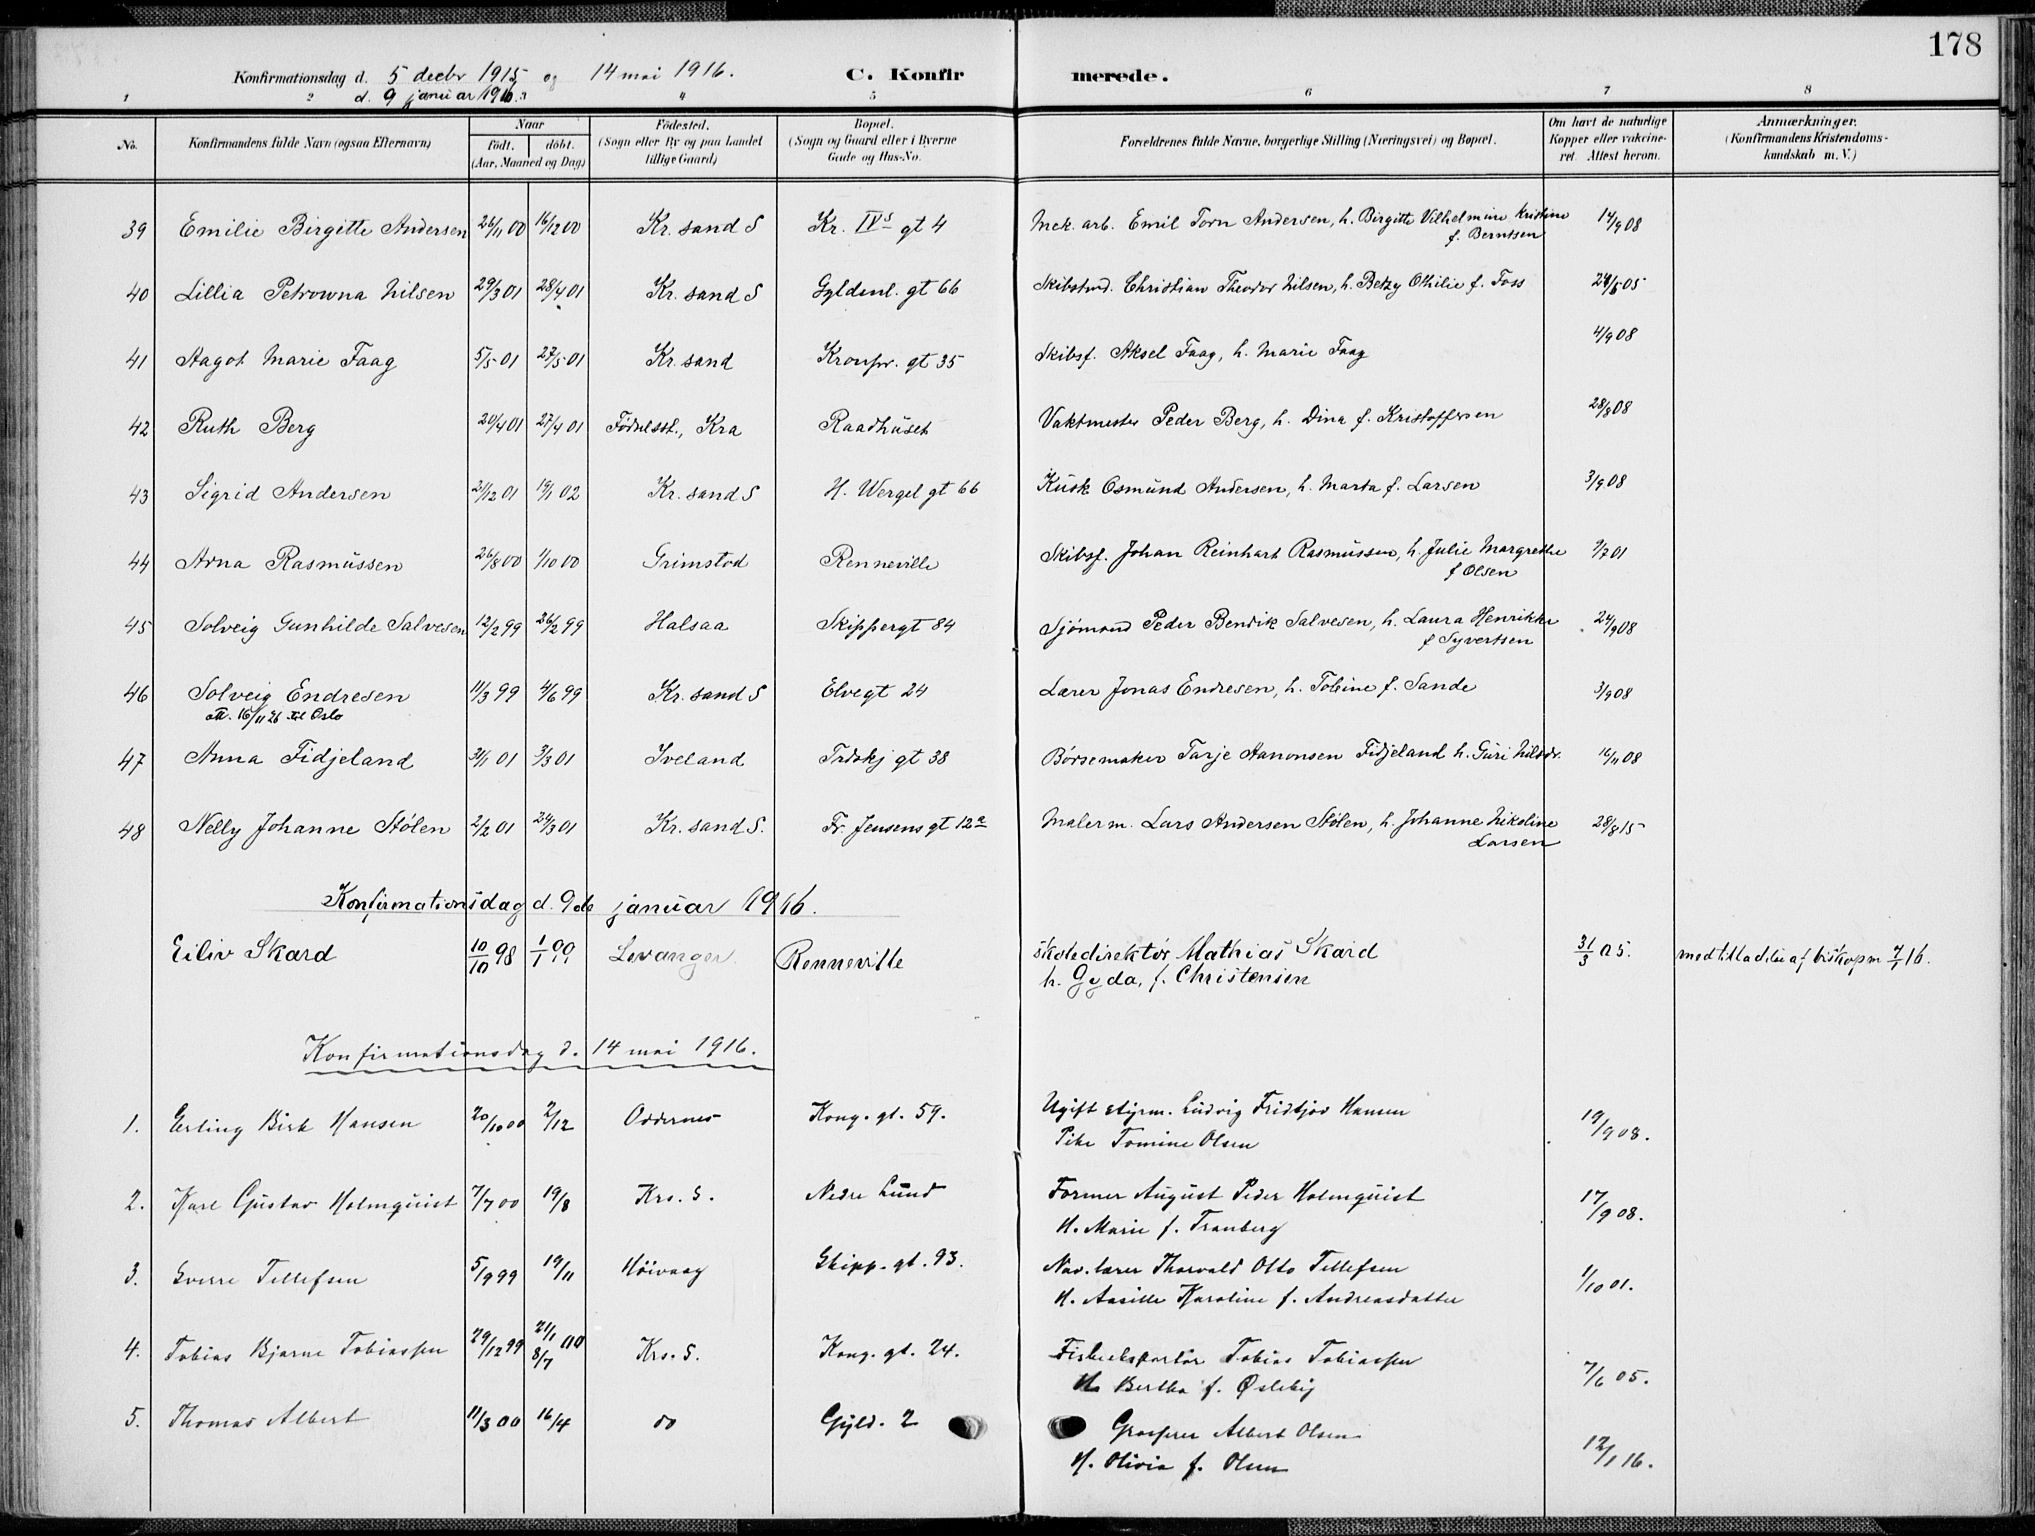 178
Konfirmationsdag d. 5 decbr 1915 og 14 mai 1916. C. Konfirmerede.
d. 9 januar 1916.
1 2 3 4 5 6 7 8
No. Konfirmandens fulde Navn (ogsaa Efternavn) Naar født. døbt. (Aar, Maaned og Dag) Fødested. (Sogn eller By og paa Landet tillige Gaard) Bopæl. (Sogn og Gaard eller i Byerne Gade og Hus-No. Forældrenes fulde Navne, borgerlige Stilling (Næringsvei) og Bopæl. Om havt de naturlige Kopper eller vakcineret. Attest herom. Anmærkninger. (Konfirmandens Kristendomskundskab m. V.)
39 Emilie Birgitte Andersen 26/11 00 16/12 00 Kr. sand S Kr. IVs gt 4 Mek. arb. Emil Torn Andersen, h. Birgitte Vilhelmine Kristine 14/9 08
f. Berntsen
40 Lillia Petrowna Nilsen 29/3 01 28/4 01 Kr. sand S Gyldenl. gt 66 Skibstmd. Christian Theodor Nilsen, h. Betzy Othilie f. Foss 24/5 05
41 Aagot Marie Faag 5/5 01 27/5 01 Kr. sand Kronpr. gt 35 Skibsf. Aksel Faag, h. Marie Faag 4/9 08
42 Ruth Berg 20/4 01 27/4 01 Fødselsst., Kra Raadhuset Vaktmester Peder Berg, h. Dina f. Kristoffersen 28/8 08
43 Sigrid Andersen 21/12 01 19/1 02 Kr. sand S H. Wergel gt 66 Kusk Osmund Andersen, h. Marta f. Larsen 3/9 08
44 Arna Rasmussen 26/8 00 1/10 00 Grimstad Renneville Skibsf. Johan Reinhart Rasmussen, h. Julie Margrethe 9/7 01
f Olsen
45 Solveig Gunhilde Salvesen 12/2 99 26/2 99 Halsaa Skippergt 84 Sjømand Peder Bendik Salvesen, h. Laura Henrikke 24/9 08
f Syvertsen
46 Solveig Endresen 11/3 99 4/6 99 Kr. sand S Elvegt 24 Lærer Jonas Endresen, h. Tobine f. Sande 3/9 08
att. 16/11 26 til Oslo
47 Anna Fidjeland 31/1 01 3/3 01 Iveland Trdskj gt 38 Børsemaker Tarje Aanonsen Fidjeland h. Guri Nilsdr. 16/11 08
48 Nelly Johanne Stølen 2/2 01 24/3 01 Kr. sand S. Fr. Jensens gt 12a Malerm. Lars Andersen Stølen, h. Johanne Nikoline 28/8 15
Larsen
Konfirmationsdag d. 9de januar 1916.
Eiliv Skard 10/10 98 1/1 99 Levanger Renneville skoledirektør Mathias Skard 31/3 05. med tilladelse af biskopen 7/1 16.
h. Gyda, f. Christensen
Konfirmationsdag d. 14 mai 1916.
1. Erling Birk Hansen 20/10 00 2/12 Oddernes Kong. gt. 59. Ugift styrm. Ludvig Fridtjov Hansen 19/9 08.
Pike Tomine Olsen
2. Karl Gustav Holmquist 7/7 00 19/8 Krs. S. Nedre Lund Former August Peder Holmquist 17/9 08.
H. Marie f. Tranberg
3. Sverre Tellefsen 5/9 99 19/11 Høivaag Skipp. gt. 93. Nav. lærer Thorvald Otto Tellefsen 1/10 01.
H. Aasille Karoline f. Andreasdatter
4. Tobias Bjarne Tobiassen 29/12 99 21/1 00 8/7 Krs. S. Kong. gt. 24. Fiskeeksportør Tobias Tobiassen 7/6 05.
H. Bertha f. Øslebøy
5. Thomas Albert 11/3 00 16/4 do Gyld. 2 Grosserer Albert Olsen 12/1 16.
H. Olivia f. Olsen